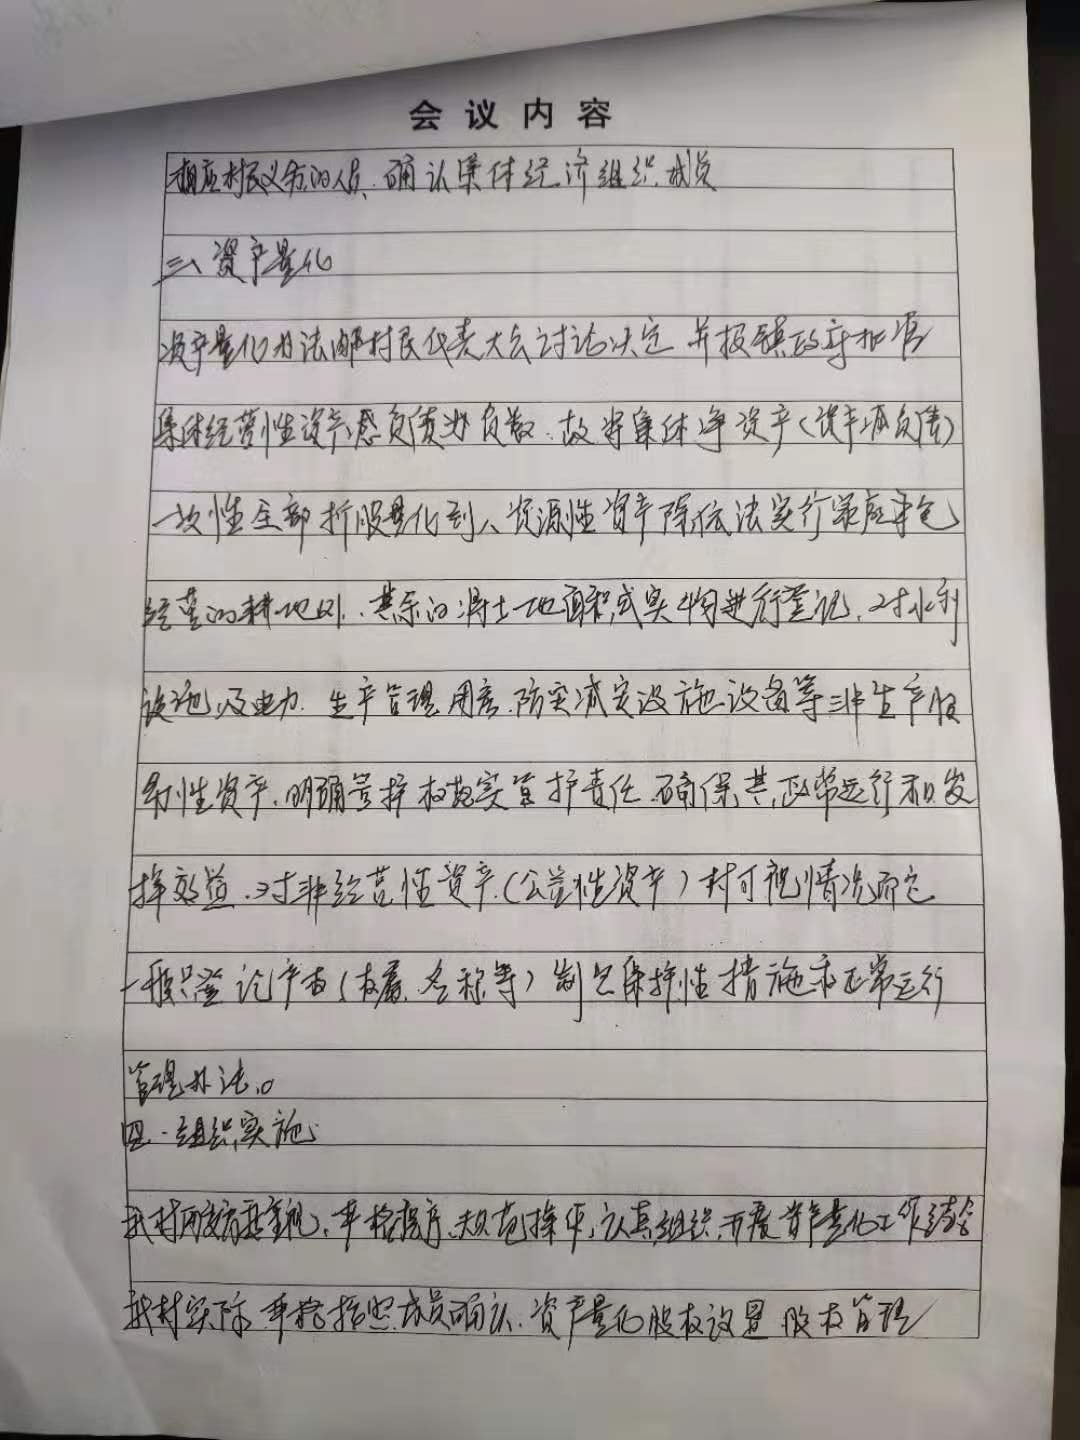 会议内容
相应村民义务的人员,确认集体经济组织成员
三、资产量化
资产量化办法由村民代表大会讨论决定,并报镇政府批准
集体经营性资产总负债为负数,故将集体净资产(资产减负债)
一次性全部折股量化到人,资源性资产除依法实行家庭承包
经营的耕地外,其余的将土地面积或实物进行登记,对水利
设施及电力、生产管理用房、防灾减灾设施设备等非生产服
务性资产,明确管护责任,确保其正常运行和发
挥效益,对非经营性资产(公益性资产)村可视情况而定
一般只登记产权(权属、名称等)制定保护性措施和正常运行
管理办法。
四、组织实施
我村两委高度重视,严格程序,规范操作,认真组织,开展资产量化工作结合
我村实际,严格按照成员确认、资产量化股权设置、股权管理